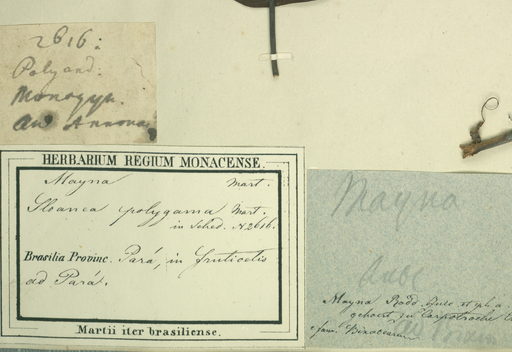 2616:
Polyand:
Monogyn.
an Annona
HERBARIUM REGIUM MONACENSE.
Mayna Mart.
Sloanea polygama Mart.
in Sched. N 2616.
Brasilia Provinc. Pará, in fruticetis
ad Pará.
Martii iter brasiliense.
Mayna
Aubl
Mayna
gehoert zu Carpotroche
fam. Bixacearum